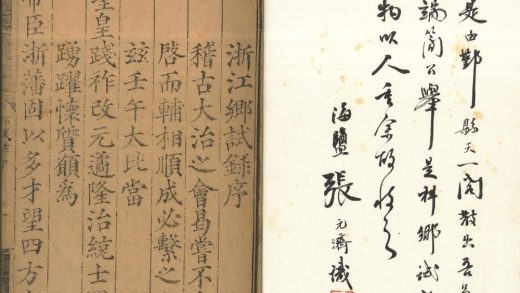 是由鄞縣天一閣散出吾
端簡公舉是科鄉試
物以人重余故收之
海鹽張元濟識
浙江鄉試錄序
稽古大治之會曷嘗不
啓而輔相順成必繫之
茲壬午大比當
皇踐祚改元適隆治統士
踴躍懷質願為
臣浙藩固以多才望四方